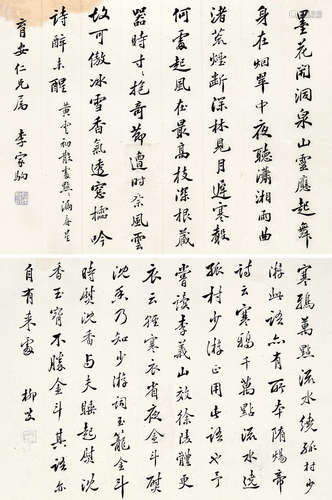 墨花開洞泉山靈應起舞
身在烟翠中夜聽瀟湘雨曲
渚荒煙斷深林見月遲寒聲
何處起風在最高枝深根藏
器時寸抱奇節遭時奈風雲
故可傲冰雪香氣透窓櫺吟
詩醉未醒 黃雲初散
育安仁兄屬 李家駒
寒鴉萬點流水繞孤村少
游此語亦有所本隋煬帝
詩云寒鴉千萬點流水繞
孤村少游正用此語也予
嘗讀李義山效徐陵體更
衣云輕寒衣省夜金斗熨
沈香乃知少游詞玉籠金斗
時熨沈香與夫睡起熨沈
香玉腕不勝金斗其語亦
自有來處